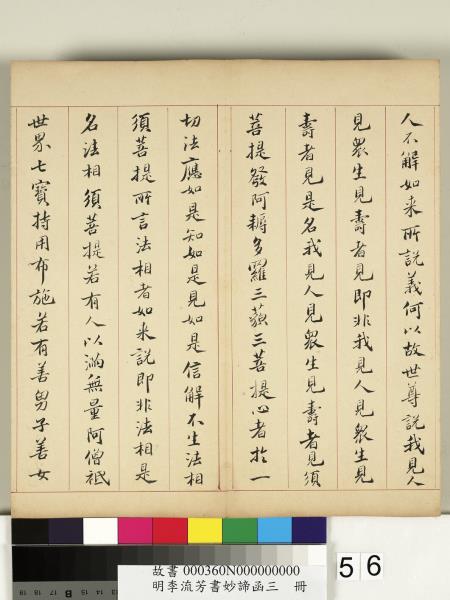 人不解如来所說義何以故世尊說我見人
見衆生見壽者見即非我見人見衆生見
壽者見是名我見人見衆生見壽者見須
菩提發阿耨多羅三藐三菩提心者於一
切法應如是知如是見如是信解不生法相
須菩提所言法相者如来說即非法相是
名法相須菩提若有人以滿無量阿僧祇
世界七寶持用布施若有善男子善女
故書 000360N000000000
明李流芳書妙諦函三 冊
56